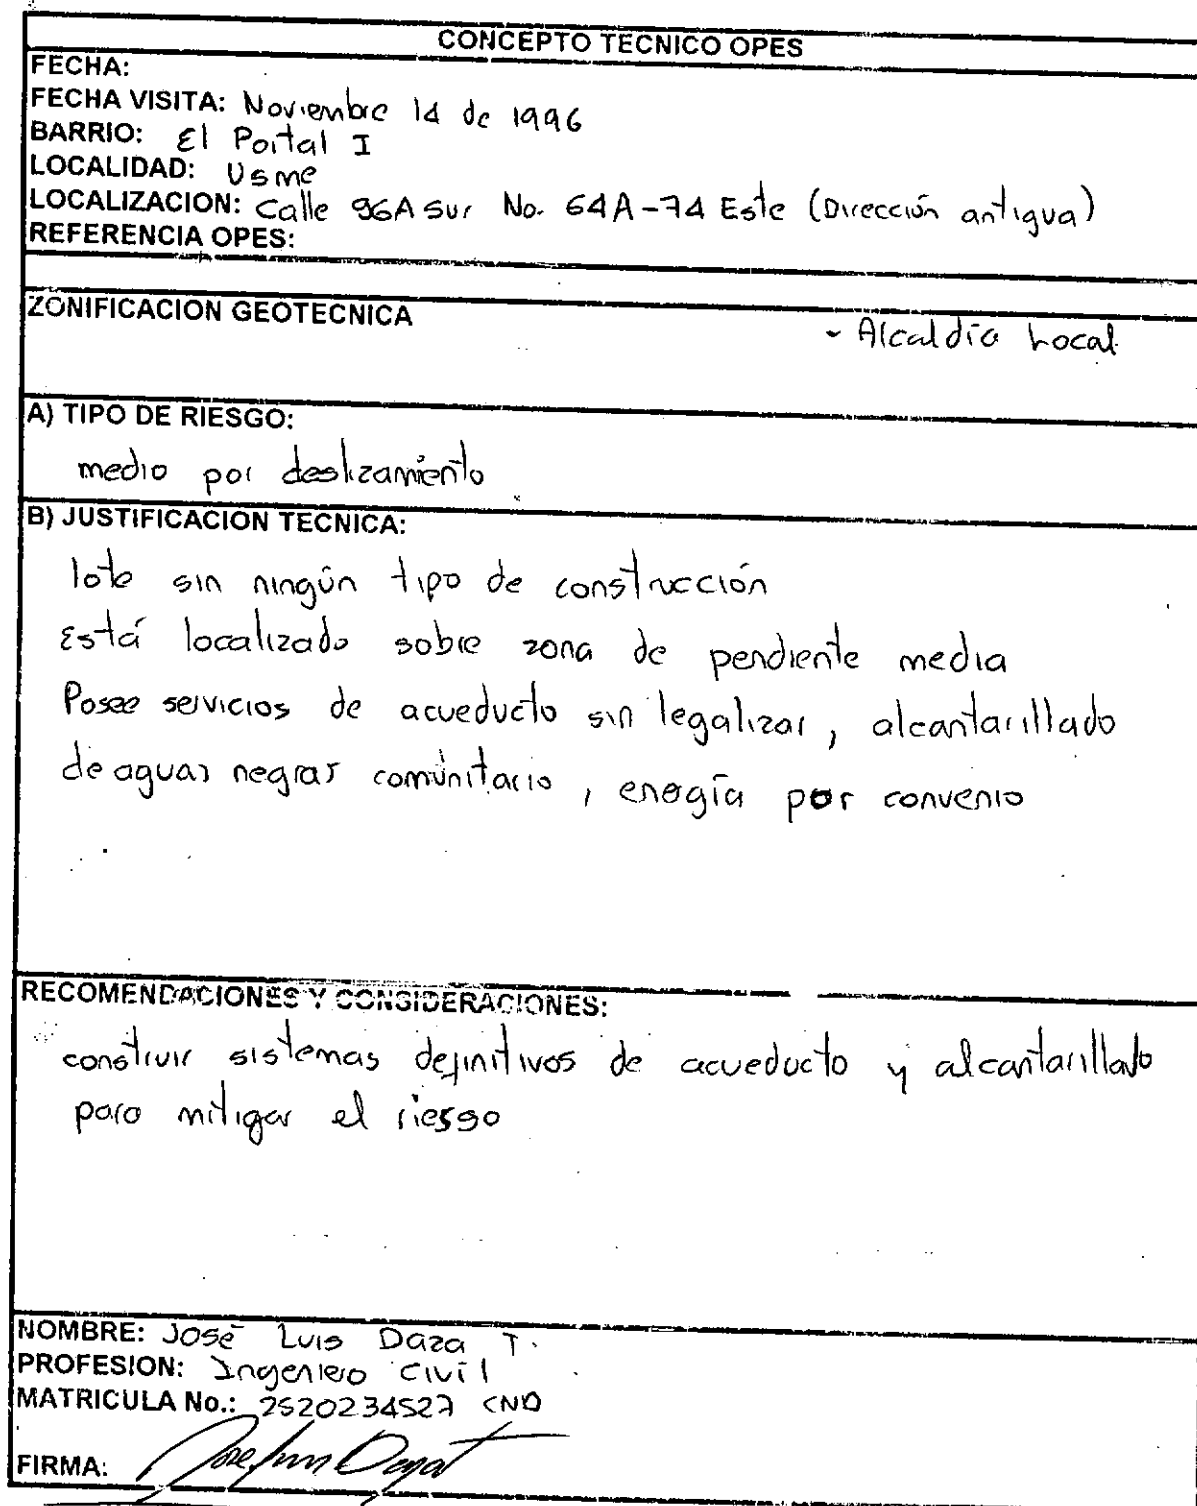 CONCEPTO TECNICO OPES
FECHA:
FECHA VISITA: Noviembre 14 de 1996
BARRIO: El Portal I
LOCALIDAD: Usme
LOCALIZACION: Calle 96A Sur No. 64A-74 Este (Dirección antigua)
REFERENCIA OPES:
ZONIFICACION GEOTECNICA
- Alcaldía Local
A) TIPO DE RIESGO:
medio por deslizamiento
B) JUSTIFICACION TECNICA:
lote sin ningún tipo de construcción
Está localizado sobre zona de pendiente media
Posee servicios de acueducto sin legalizar, alcantarillado
de aguas negras comunitario, energía por convenio
RECOMENDACIONES Y CONSIDERACIONES:
construir sistemas definitivos de acueducto y alcantarillado
para mitigar el riesgo
NOMBRE: José Luis Daza T.
PROFESION: Ingeniero Civil
MATRICULA No.: 2520234527 CND
FIRMA: Jose Luis Daza T